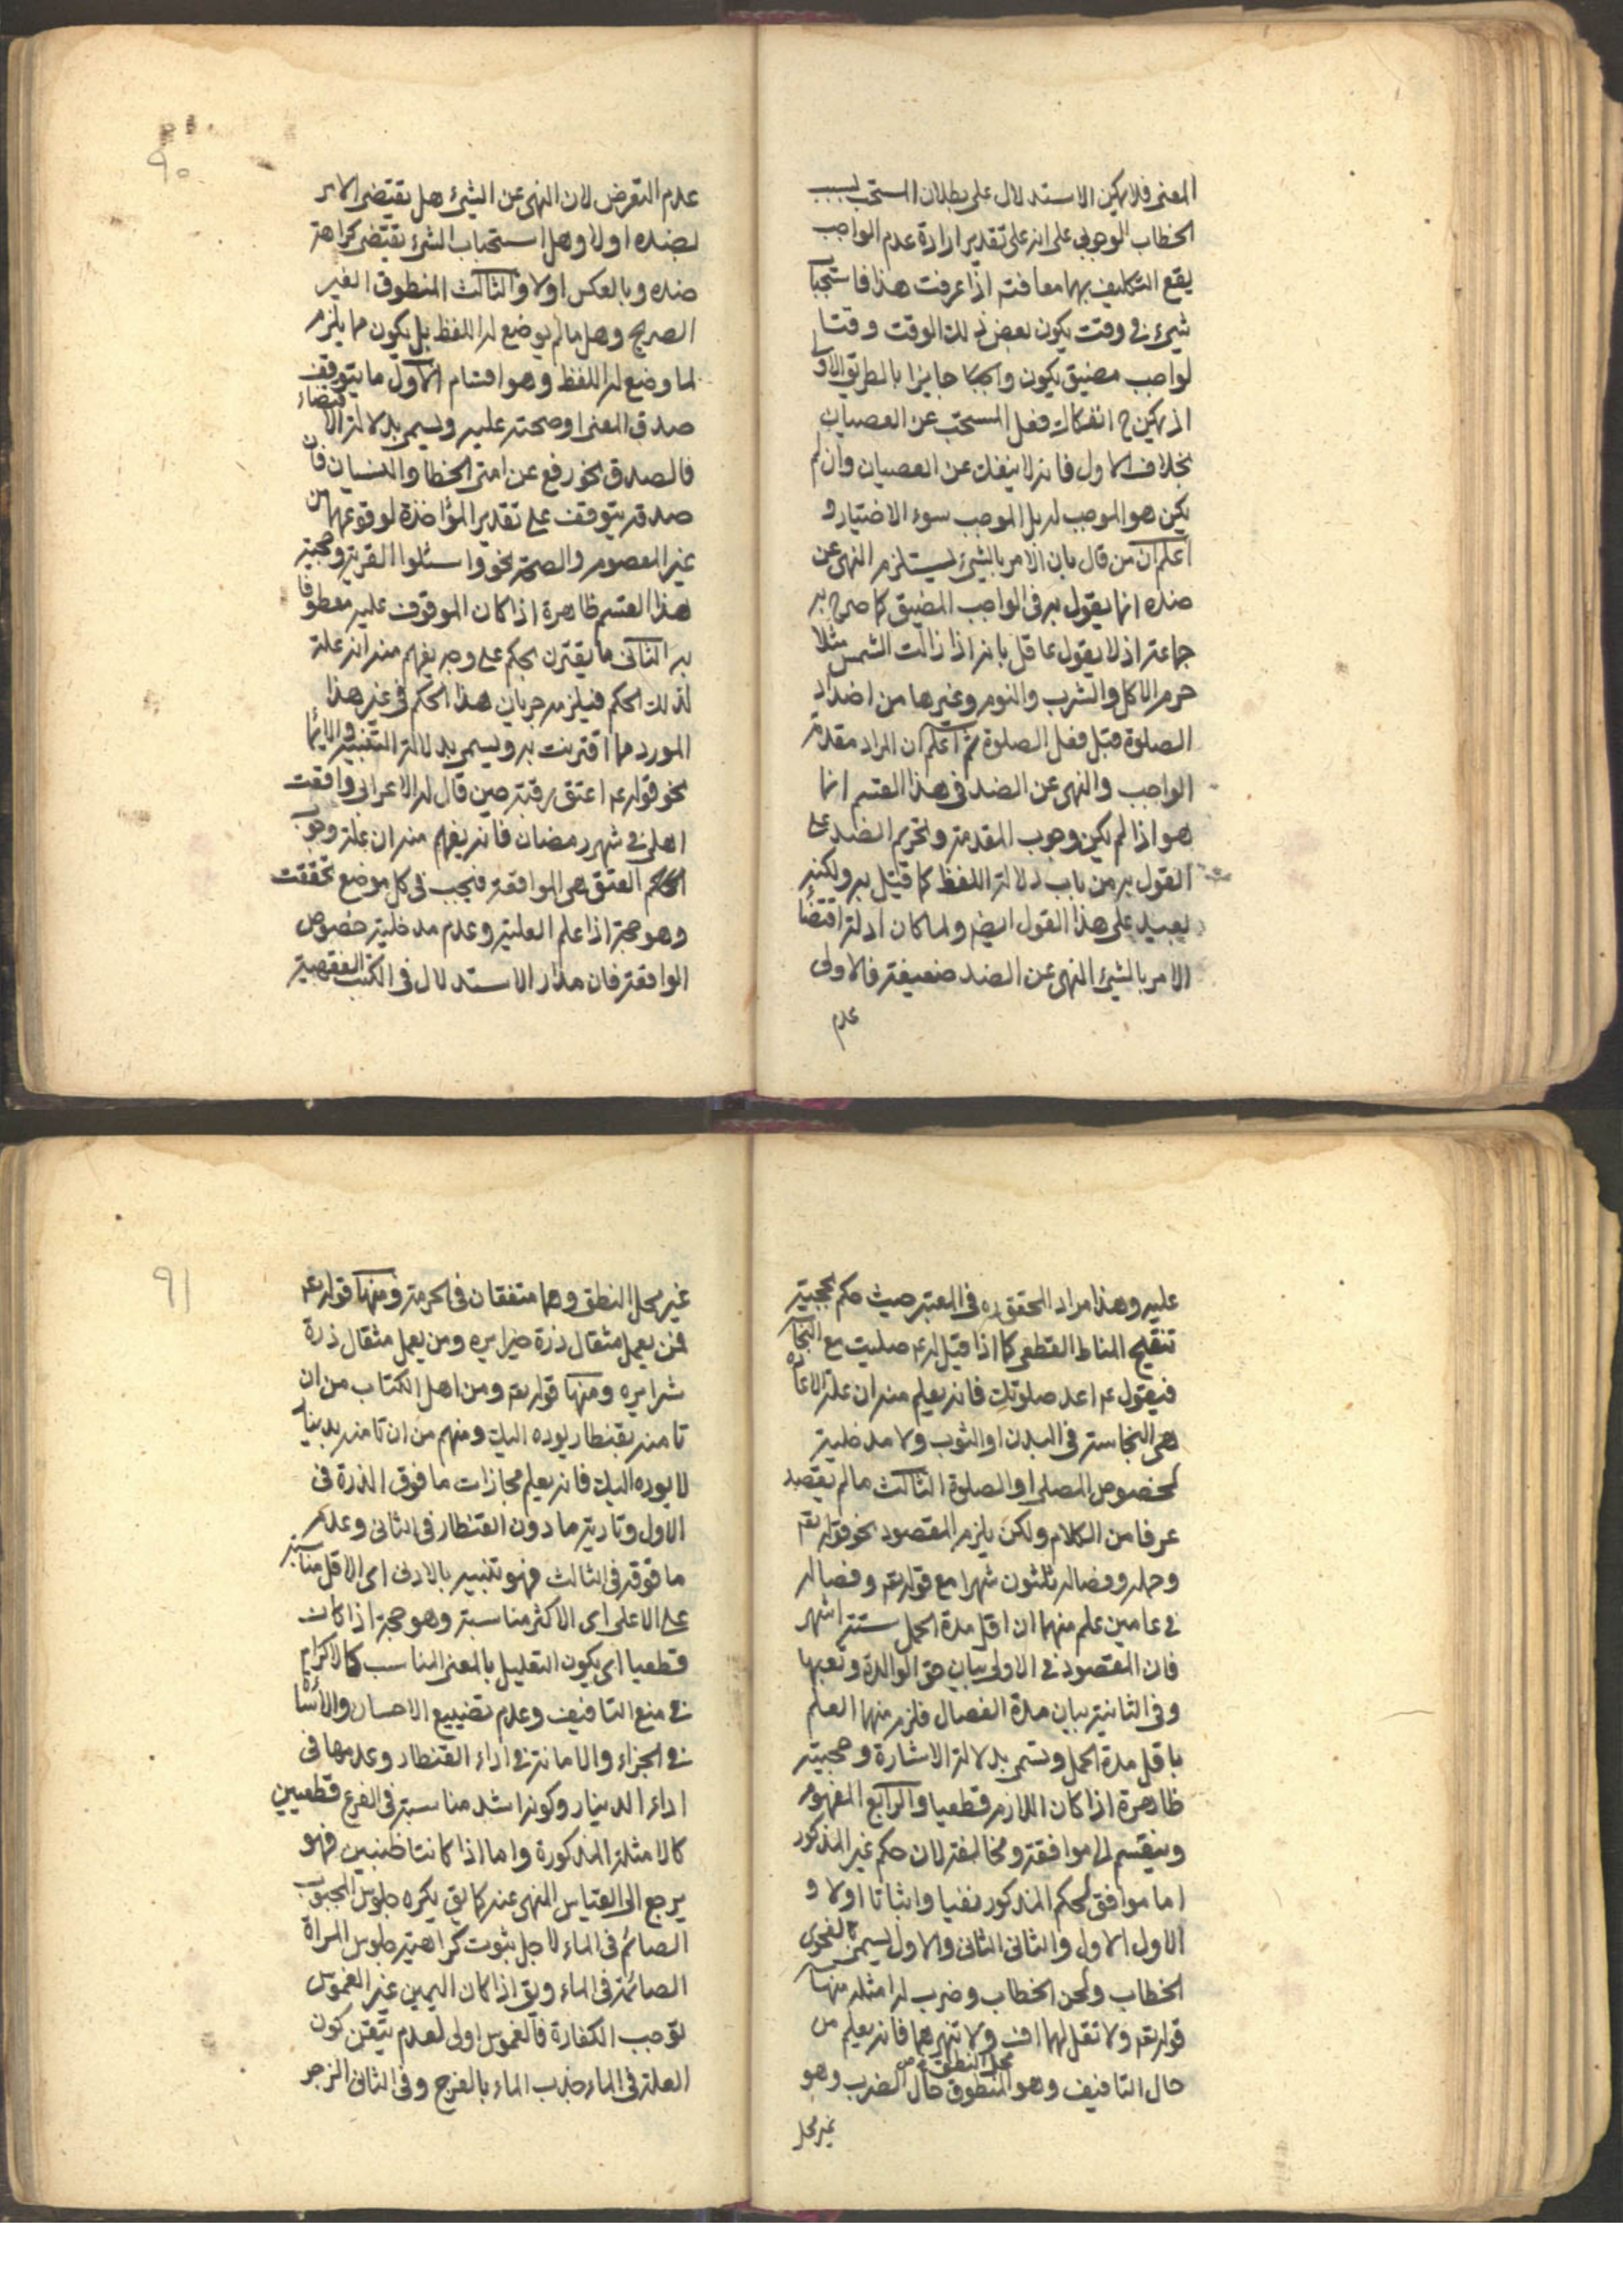 المعنى فلا يمكن الاستدلال على بطلان المستحب بسبب
الخطاب الوجوبي على انه على تقدير ارادة عدم الواجب
يقع التكليف بهما معا فتم اذا عرفت هذا فاستحبا
شيء في وقت يكون بعض ذلك الوقت وقتا
لواجب مضيق يكون جايزا بالطريق الاولى
اذ يمكن ح انفكاك فعل المستحب عن العصيان
بخلاف الاول فانه لا ينفك عن العصيان وان لم
يكن هو الموجب له بل الموجب سوء الاختيار و
اعلم ان من قال بان الامر بالشيء يستلزم النهي عن
ضده انما يقول به في الواجب المضيق كما صرح به
جماعة اذ لا يقول عاقل بانه اذا زالت الشمس مثلا
حرم الاكل والشرب والنوم وغيرها من اضداد
الصلوة قبل فعل الصلوة ثم اعلم ان المراد مقدمة
الواجب والنهي عن الضد في هذا القسم انما
هو اذا لم يكن وجوب المقدمة وتحريم الضد على
القول به من باب دلالة اللفظ كما قيل به ولكنه
بعيد على هذا القول ايض ولما كان ادلة اقتضا
الامر بالشيء النهي عن الضد ضعيفة فالاولى
عدم
٩٠
عدم التعرض لان النهي عن الشيء هل يقتضي الامر
بضده اولا وهل استحباب الشيء يقتضي كراهة
ضده وبالعكس اولا والثالث المنطوق الغير
الصريح وهل ما لم يوضع له اللفظ بل يكون مما يلزم
لما وضع له اللفظ وهو اقسام الاول ما يتوقف
صدق المعنى او صحته عليه ويسمى بدلالة الاقتضاء
فالصدق نحو رفع عن امتي الخطا والنسيان فان
صدقه يتوقف على تقدير المؤاخذة لوقوعهما من
غير المعصوم والصحة نحو واسئلوا القرية وحجية
هذا القسم ظاهرة اذا كان الموقوف عليه مقطوعا
به الثاني ما يقترن بحكم على وجه يفهم منه انه علة
لذلك الحكم فيلزم جريان هذا الحكم في غير هذا
المورد مما اقترنت به ويسمى بدلالة التنبيه والايما
نحو قوله ع اعتق رقبة حين قال له الاعرابي واقعت
اهلي في شهر رمضان فانه يفهم منه ان علة وجوب
العتق هي المواقعة فيجب في كل موضع تحققت
وهو حجة اذا علم العلية وعدم مدخلية خصوص
الواقعة فان مدار الاستدلال في الكتب الفقهية
عليه وهذا مراد المحقق ره في المعتبر حيث حكم بحجية
تنقيح المناط القطعي كما اذا قيل له ع صليت مع النجاسة
فيقول ع اعد صلوتك فانه يعلم منه ان علة الاعادة
هي النجاسة في البدن او الثوب ولا مدخلية
لخصوص المصلي او الصلوة الثالث ما لم يقصد
عرفا من الكلام ولكن يلزم المقصود نحو قوله تع
وحمله وفصاله ثلثون شهرا مع قوله تع وفصاله
في عامين علم منهما ان اقل مدة الحمل ستة اشهر
فان المقصود في الاولى بيان حق الوالدة وتعبها
وفي الثانية بيان مدة الفصال فلزم منهما العلم
باقل مدة الحمل وتسمى بدلالة الاشارة وحجيته
ظاهرة اذا كان اللازم قطعيا والرابع المفهوم
وينقسم الى موافقة ومخالفة لان حكم غير المذكور
اما موافق لحكم المذكور نفيا واثباتا اولا و
الاول الاول والثاني الثاني والاول يسمى بفحوى
الخطاب ولحن الخطاب وضرب له امثلة منها
قوله تع ولا تقل لهما اف ولا تنهرهما فانه يعلم من
حال التافيف وهو محل النطق حال الضرب وهو
غير محل
٩١
غير محل النطق وهما متفقان في الحرمة ومنها قوله تع
فمن يعمل مثقال ذرة خيرا يره ومن يعمل مثقال ذرة
شرا يره ومنها قوله تع ومن اهل الكتاب من ان
تامنه بقنطار يوده اليك ومنهم من ان تامنه بدينار
لا يوده اليك فانه يعلم مجازات ما فوق الذرة في
الاول وتادية ما دون القنطار في الثاني وعدم
ما فوقه في الثالث فهو تنبيه بالادنى اي الاقل مناسبة
على الاعلى اي الاكثر مناسبة وهو حجة اذا كان
قطعيا اي يكون التعليل بالمعنى المناسب كالاكرام
في منع التافيف وعدم تضييع الاحسان والاسائة
في الجزاء والامانة في اداء القنطار وعدمها في
اداء الدينار وكونه اشد مناسبة في الفرع قطعيين
كالامثلة المذكورة واما اذا كانتا ظنيين فهو
يرجع الى القياس المنهي عنه كما يق يكره جلوس المجبوب
الصائم في الماء لاجل ثبوت كراهية جلوس المراة
الصائمة في الماء ويق اذا كان اليمين غير الغموس
توجب الكفارة فالغموس اولى لعدم تيقن كون
العلة في الماء جذب الماء بالفرج وفي الثاني الزجر